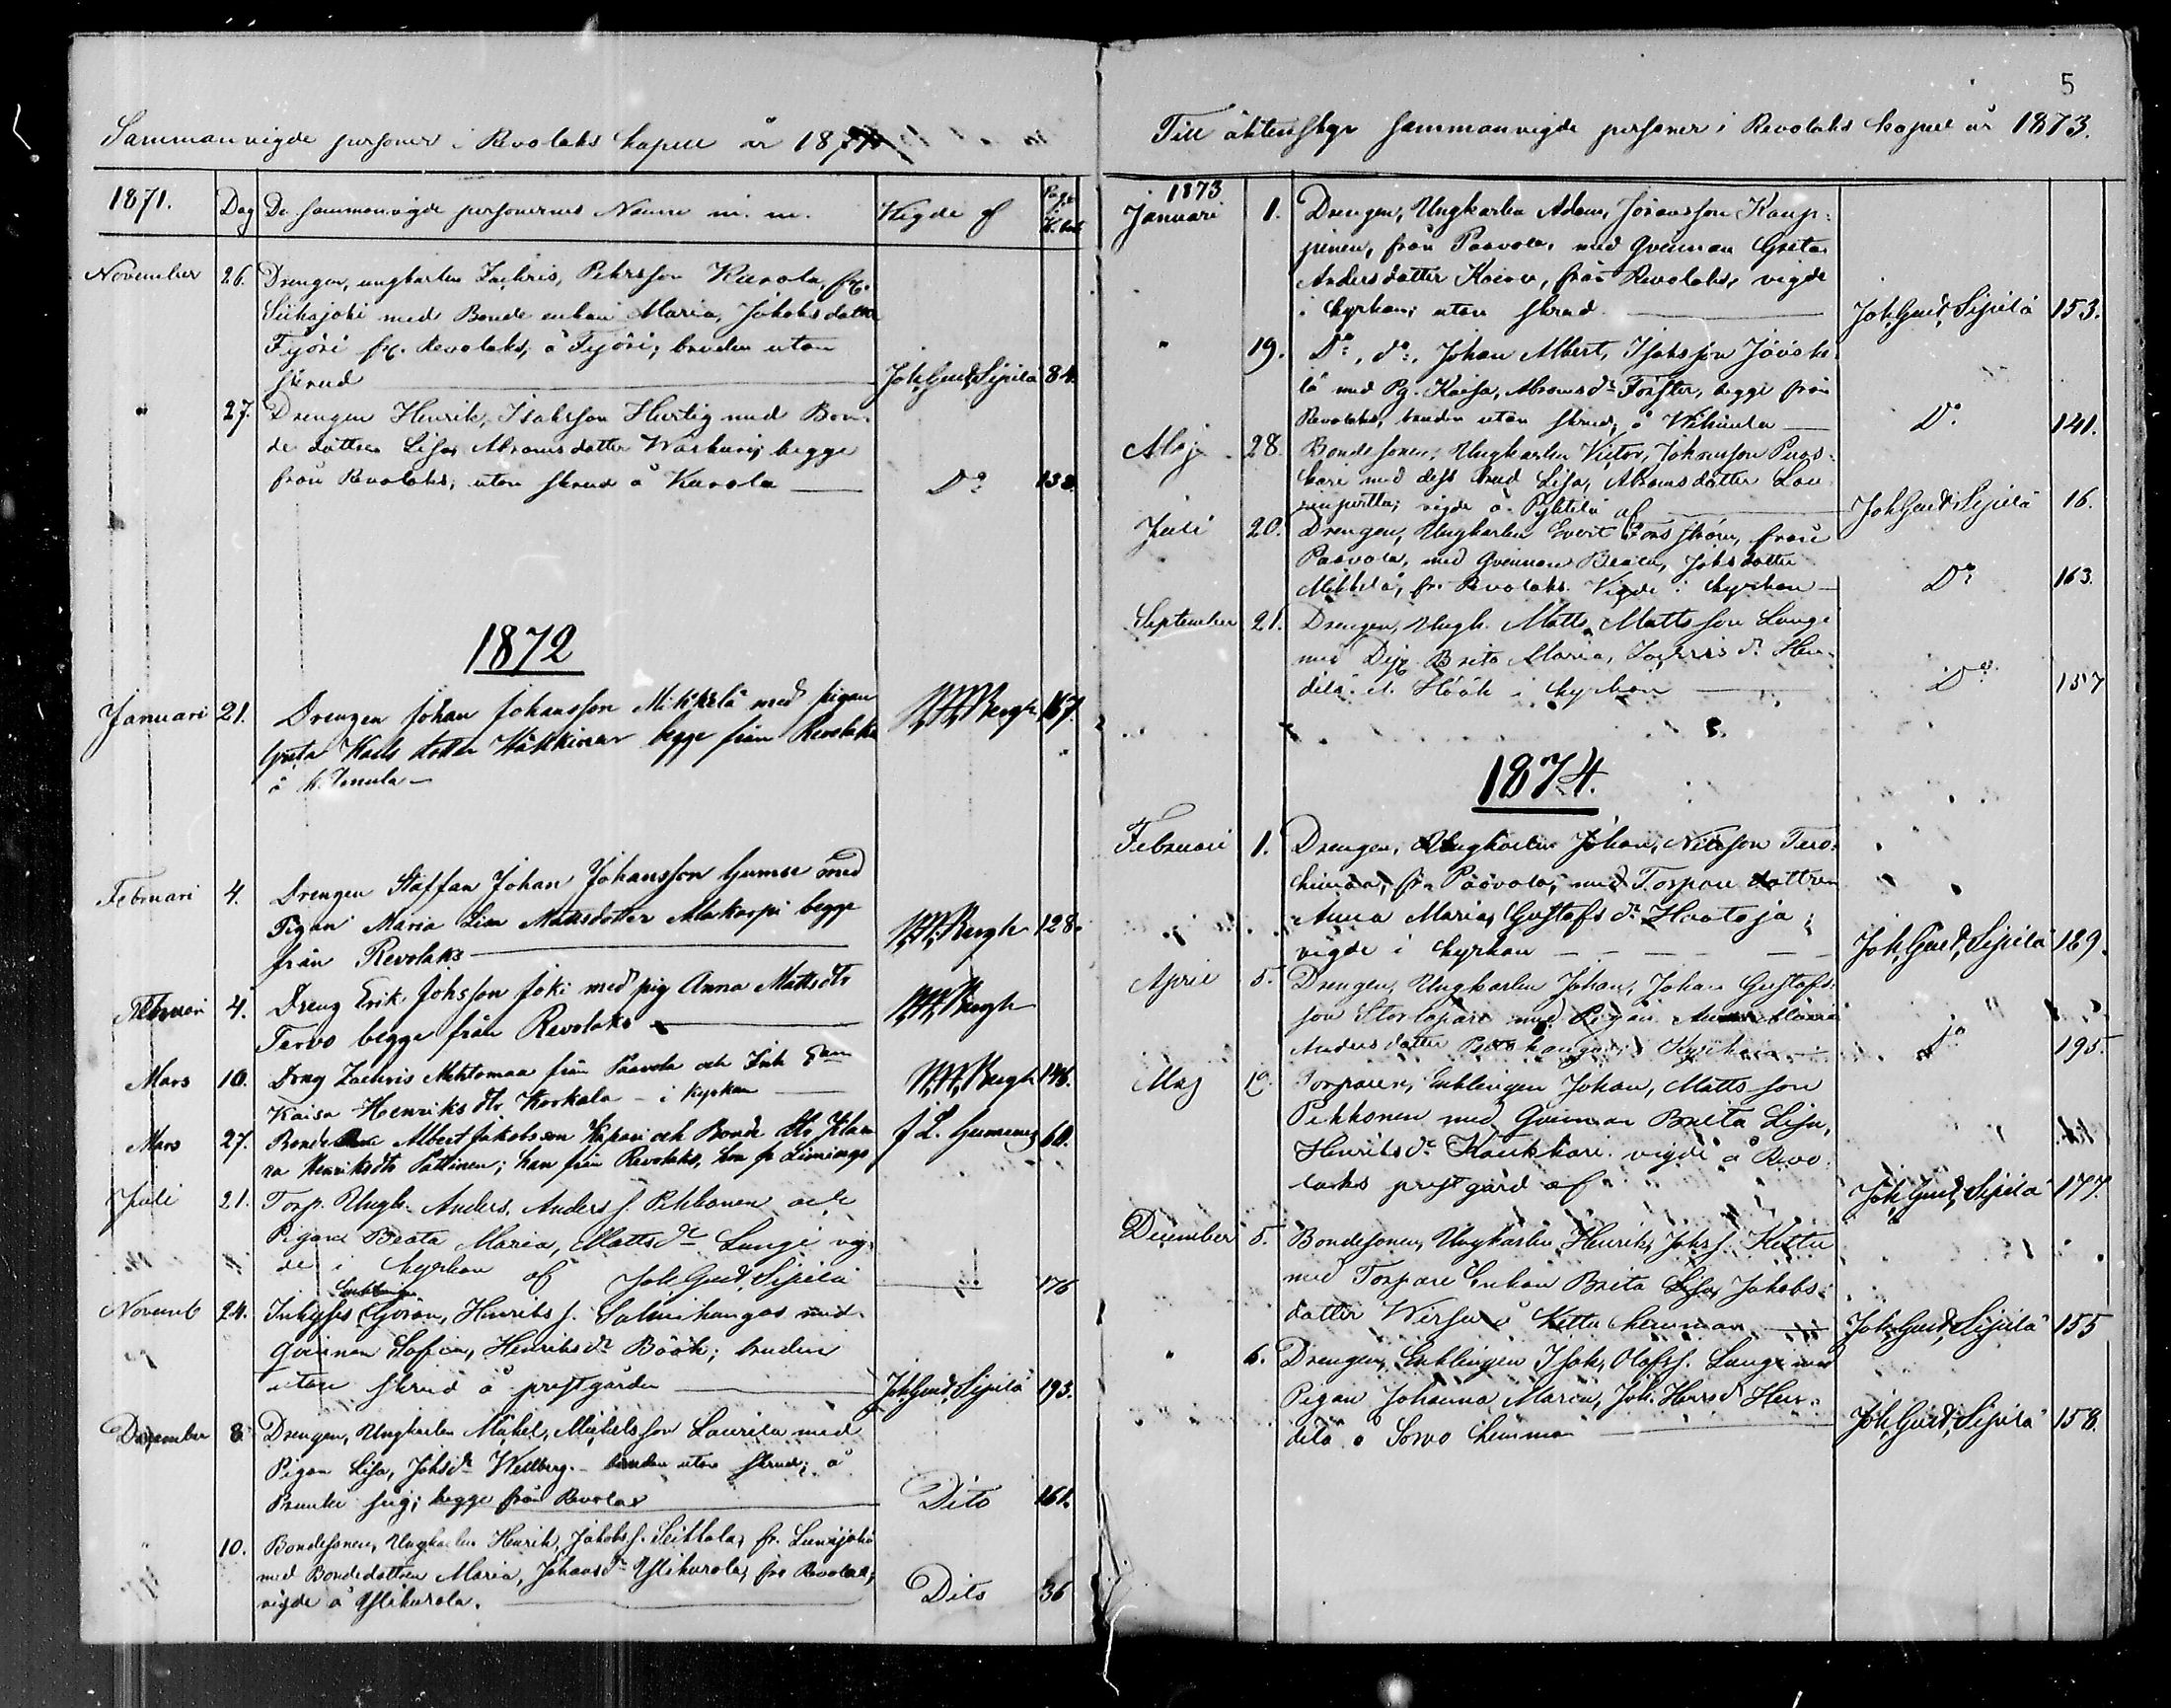 Sammanvigde personer i Revolaks kapell år 1871
1871. Dag De sammanvigde personernes Namn m. m. Vigde af Pag. i K. bok
November 26. Drengen, ungkarlen Zachris, Petersson Karola, fr.
Siikajoki med Bonde enkan Maria, Jakobsdotter
Työri fr. Revolaks, å Työri; bruden utan
skrud Joh. Gust. Sipilä 84.
" 27. Drengen Henrik, Isaksson Hurtig med Bon-
de dottren Lisa, Abramsdotter Warkuri, begge
från Revolaks, utan skrud å Karola Do 138.
1872
Januari 21. Drengen Johan Johansson Mikkelä med pigan
Greta Karls dotter Häkkinen begge från Revolaks
å
167
Februari 4. Drengen Staffan Johan Johansson Gumse med
Pigan Maria Lisa Mattsdotter Alakorpi begge
från Revolaks Bergh 128.
Februari 4. Dreng Erik Johsson Joki med pig Anna Mattsdtr
Tervo begge från Revolaks Bergh
Mars 10. Dreng Zachris Mehtomaa från Paavola och Enk
Kaisa Henriksdtr Korkala - i Kyrkan Bergh 146.
Mars 27. Bonde Albert Jakobsson och Bonde dtr
Henriksdtr Pattinen; han från Revolaks, hon fr Limingo J L. Gummerus 60.
Juli 21. Torp. Ungk. Anders, Anders s. Pekkonen och
Pigan Beata Maria, Matts dr Lange vig-
de i kyrkan af Joh. Gust. Sipilä 176
Novemb 24. Inhyses Enklingen Göran, Henriks s. Salmikangas med
Qvinnan Sofia, Henriks dr Böök; bruden
utan skrud å prestgården Joh. Gust. Sipilä 193.
December 8 Drengen, Ungkarlen Mikel, Mickelsson Laurila med
Pigan Lisa, Johs dr Wellberg. bruden utan skrud; å
begge från Revolax Dito 161.
" 10. Bondesonen, Ungkarlen Henrik, Jakobs s. Seikkala, fr. Lumijoki
med Bondedottren Maria, Johans dr Ylikurola, fr Revolax;
vigde å Ylikurola. Dito 36
5
Till äktenskap sammanvigde personer i Revolaks kapell år 1873.
1873
Januari 1. Drengen, Ungkarlen Adam, Göransson Kaup-
pinen, från Paavola, med qvinnan Greta
Andersdotter Koivu, från Revolaks, vigde
i kyrkan; utan skrud Joh. Gust. Sipilä 153.
" 19. Do, do, Johan Albert, Isaksson Jääsk-
lä med Pg. Kaisa, Abrams dr Forster, begge från
Revolaks, bruden utan skrud, å Do 141.
Maj 28. Bondesonen, Ungkarlen Victor, Johansson Puos-
kari med dess brud Lisa, Abramsdotter Lau-
rinperttu, vigde å Pehtilä af Joh Gust Sipilä 16.
Juli 20. Drengen, Ungkarlen Evert Forsström, från
Paavola, med qvinnan Beata, Johsdotter
Mikkelä, fr. Revolaks. Vigde i kyrkan Do 163.
September 21. Drengen, Ungk. Matts, Mattsson Lange
med Brita Maria, Zachris dr Hen-
dilä, Höök i kyrkan Do 157
1874.
Februari 1. Drengen, Ungkarlen Johan, Nilsson Tero-
fr. Paavola, med Torpare dottren
Anna Maria, Gustafs dr Haataja;
vigde i kyrkan Joh. Gust. Sipilä 189.
April 5. Drengen, Ungkarlen Johan, Johan Gustafs-
son Storlöpare med Pigan Anna Maria
Andersdotter i Kyrkan Do 195.
Maj Torparen, Enklingen Johan, Mattsson
Pekkonen med Qvinnan Brita Lisa,
Henriks dr Kaukkari. vigde å Revo-
laks prestgård af Joh. Gust. Sipilä 177.
December 5. Bondesonen, Ungkarlen Henrik, Johs s. Kettu
med Torpare Enkan Brita Lisa, Jakobs-
dotter Wirsu å Kettu hemman Joh. Gust. Sipilä 155
" 6. Drengen, Enklingen Isak, Olofs s. Lange med
Pigan Johanna Maria, Joh. Henrs dr Hen-
dilä å Sorvo hemman Joh. Gust. Sipilä 158.